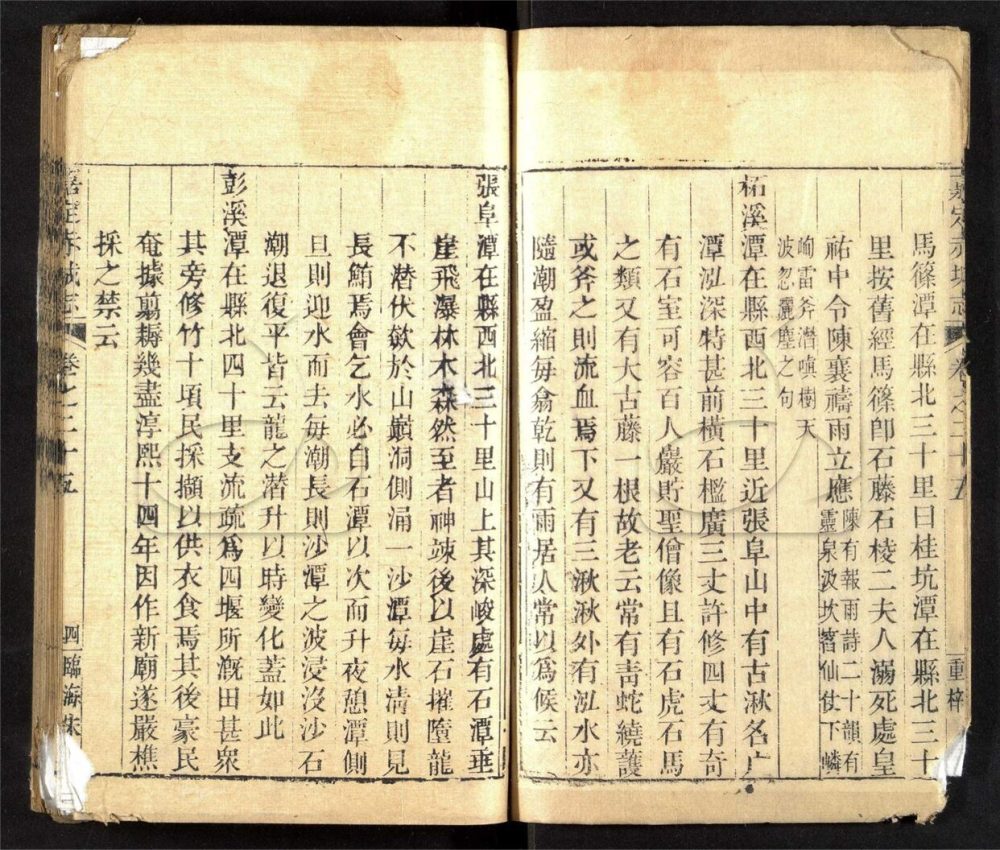 嘉定赤城志
卷之三十五
重梓
馬篠潭在縣北三十里曰桂坑潭在縣北三十
里按舊經馬篠卽石藤石棱二夫人溺死處皇
祐中令陳襄禱雨立應陳有報雨詩二十韻有靈泉汲坎窞仙仗下嶙
峋雷斧潛嗔樹天波忽灑塵之句
柘溪潭在縣西北三十里近張阜山中有古湫名
潭泓深特甚前橫石檻廣三丈許修四丈有奇
有石室可容百人巖貯聖僧像且有石虎石馬
之類又有大古藤一根故老云常有靑蛇繞護
或斧之則流血焉下又有三湫湫外有泓水亦
隨潮盈縮每翕乾則有雨居人常以爲候云
張阜潭在縣西北三十里山上其深峻處有石潭垂
崖飛瀑林木森然至者神竦後以崖石摧墮龍
不潛伏歘於山巔洞側涌一沙潭每水清則見
長鮪焉會乞水必自石潭以次而升夜憩潭側
旦則迎水而去每潮長則沙潭之波浸沒沙石
潮退復平皆云龍之潛升以時變化蓋如此
彭溪潭在縣北四十里支流疏爲四堰所溉田甚衆
其旁修竹十頃民採擷以供衣食焉其後豪民
奄據翦耨幾盡淳熙十四年因作新廟遂嚴樵
採之禁云
嘉定赤城志
卷之三十五
四
臨海宋